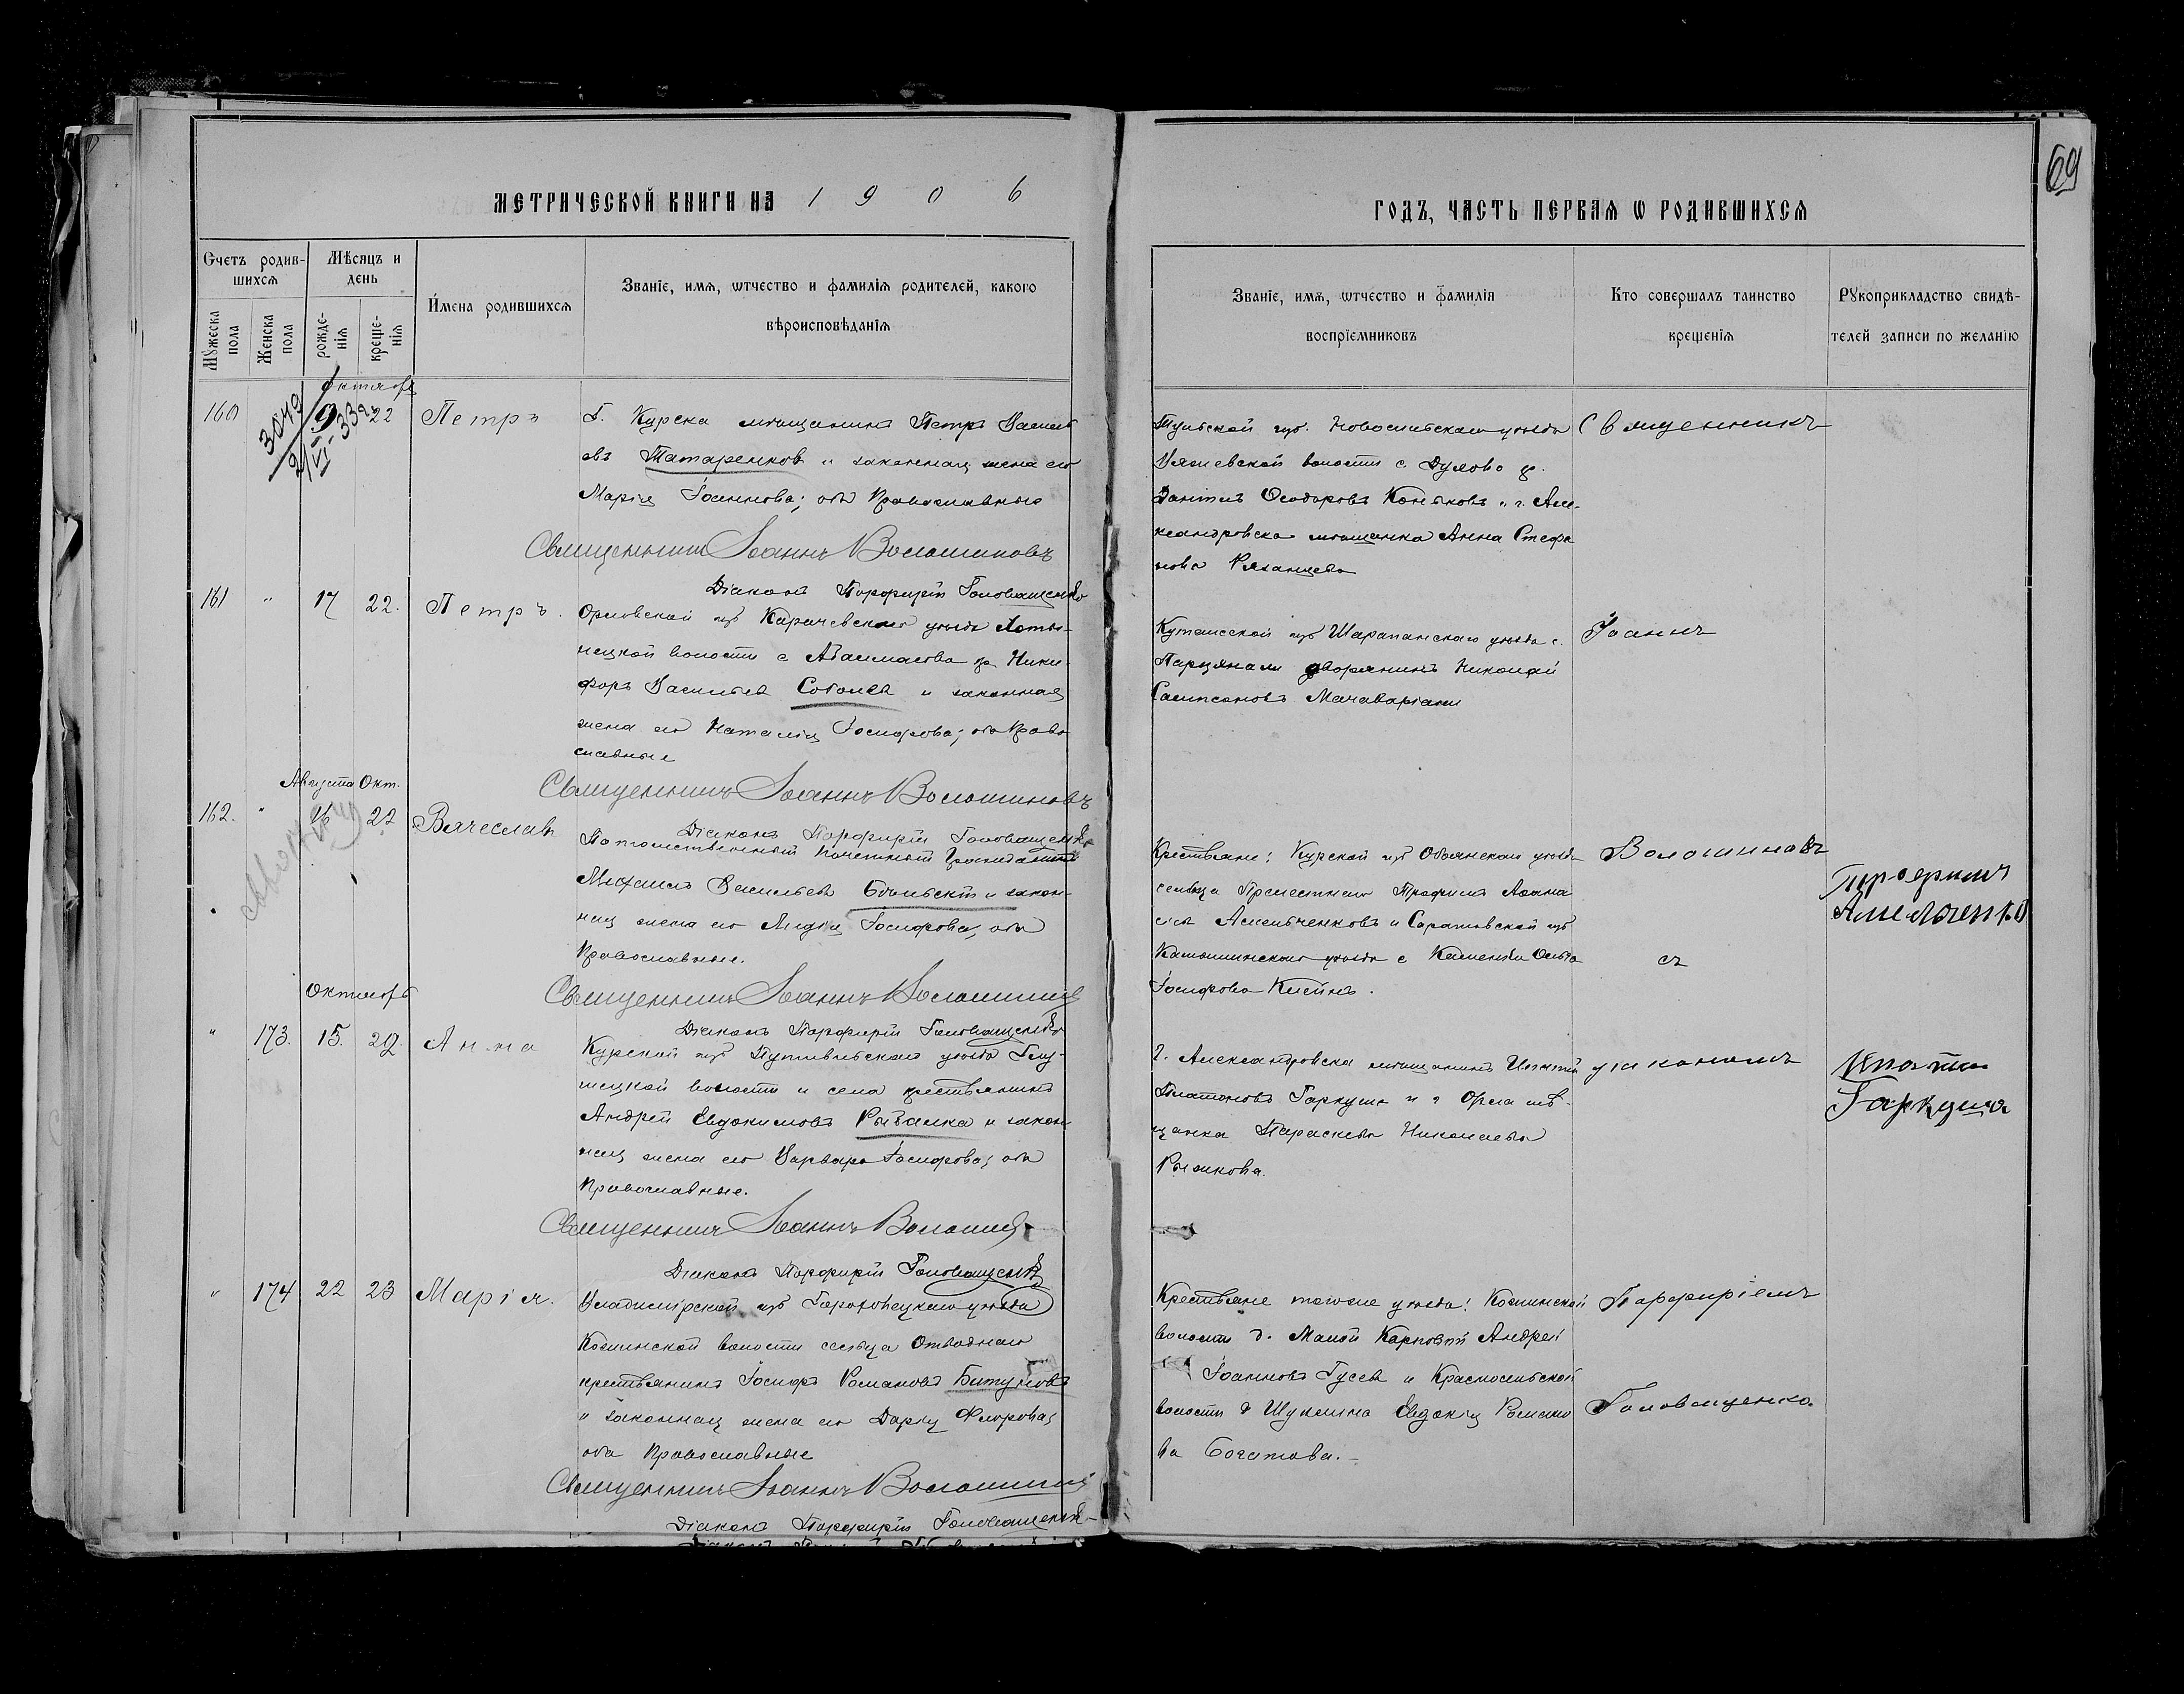 69
МЕТРИЧЕСКОЙ КНИГИ НА 1906
ГОДЪ, ЧАСТЬ ПЕРВАЯ Ѡ РОДИВШИХСЯ
Счетъ родив-
шихсѧ
Мѣсяцъ и
день
Мꙋжеска
пола
Женска
пола
рожде-
нїѧ
креще-
нїѧ
И́мена родившихсѧ
Званїе, имѧ, ѡтчество и фамилїѧ родителей, какого
вѣроисповѣданїѧ
Званїе, имѧ, ѡтчество и фамилїѧ
воспрїемниковъ
Кто совершалъ таинство
крещенїѧ
Рꙋкоприкладство свидѣ-
телей записи по желанїю
Октябрь
160
9
22
Петръ
Г. Курска мѣщанинъ Петръ Василь
евъ Татаренковъ и законная жена его
Марія Іоаннова; оба Православные
Священникъ Іоаннъ Волошиновъ
Діаконъ Порфирій Головащенко
Тульской губ. Новосильскаго уѣзда
волости с.
Ѳеодоровъ и г. Але-
ксандровска мѣщанка Анна Стефа
нова Рязанцева
Священникъ
161
"
17
22.
Петръ.
Орловской губ Карачевскаго уѣзда Хоты-
нецкой волости с кр Ники-
форъ Васильевъ Соболевъ и законная
жена его Наталія Іосифова; оба Право
славные
Священникъ Іоаннъ Волошиновъ
Діаконъ Порфирій Головащенко
Кутаисской губ Шарапанскаго уѣзда с.
дворянинъ Николай
Сампсоновъ Мачаваріани
Іоаннъ
Августа Окт.
162.
"
16
22
Вячеславъ
Потомственный почетный гражданинъ
Михаилъ Васильевъ и закон-
ная жена его Лидія Іосифова, оба
Православные.
Священникъ Іоаннъ Волошинов
Діаконъ Порфирій Головащенко
Крестьяне: Курской губ Обоянскаго уѣзда
сельца Трофимъ Аѳана
сіевъ Амельченковъ и Саратовской губ
Камышинскаго уѣзда с Каменки Ольга
Іосифова
Волошиновъ
съ
Амельченко
Октябрь
"
173.
15.
22.
Анна
Курской губ Путивльскаго уѣзда Глу-
шецкой волости и села крестьянинъ
Андрей Евдокимовъ Рыбалка и закон
ная жена его Варвара Іосифова; оба
Православные.
Священникъ Іоаннъ Волошинов
Діаконъ Порфирій Головащенко
г. Александровска мѣщанинъ Игнатій
Платоновъ Гаркуша и г Орла мѣ-
щанка Параскева Николаева
Рыжкова.
діакономъ
Гаркуша
"
174
22
23
Марія.
Владимірской губ Гороховецкаго уѣзда
Кожинской волости сельца Отводнаго
крестьянинъ Іосифъ Романовъ Битуновъ
и законная жена его Дарія Флорова;
оба Православные
Священникъ Іоаннъ Волошинов
Діаконъ Порфирій Головащенко
Крестьяне того же уѣзда: Кожинской
волости д. Малой Карповой Андрей
Іоанновъ Гусевъ и Красносельской
волости д Шуклина Евдокія Романо
ва Богатова.
Порфиріемъ
Головащенко.